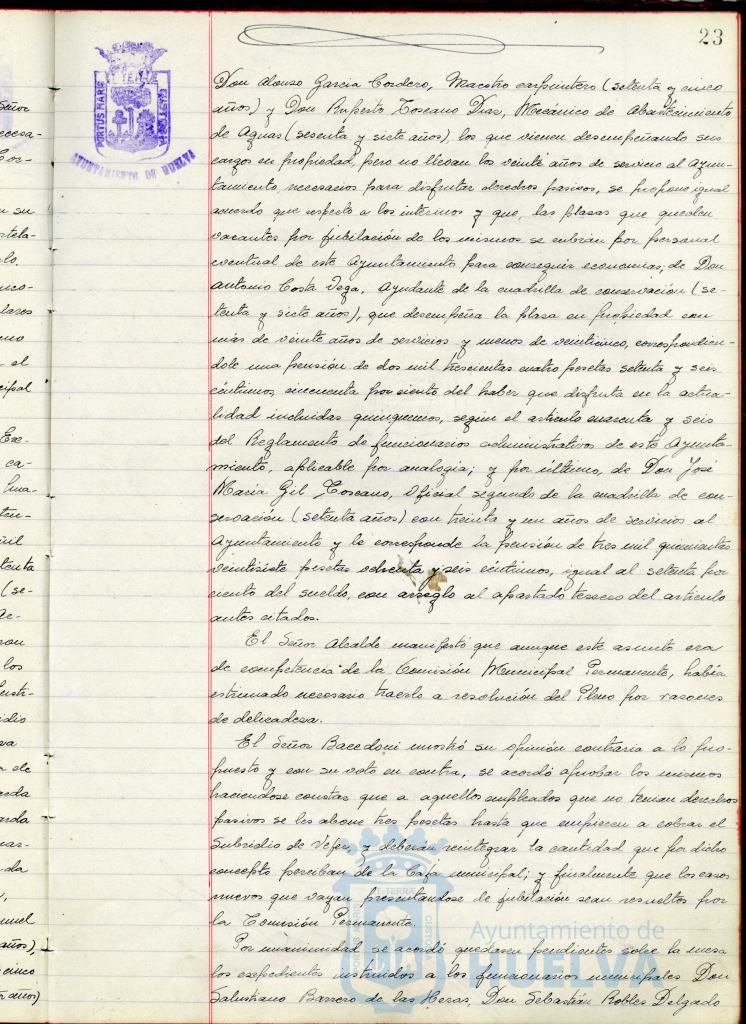 23
PORTUS MARIS
ET TERRAE
CUSTODIA
AYUNTAMIENTO DE HUELVA
Don Alonso Garcia Cordero, Maestro carpintero (setenta y cinco
años) y Don Ruperto Toscano Diaz, Mecánico de Abastecimiento
de Aguas (sesenta y siete años), los que vienen desempeñando sus
cargos en propiedad, pero no llevan los veinte años de servicio al Ayun-
tamiento, necesarios para disfrutar derechos pasivos, se propone igual
acuerdo que respecto a los internos y que, las plazas que queden
vacantes por jubilación de los mismos se cubrán por personal
eventual de este Ayuntamiento para conseguir economias; de Don
Antonio Costa Vega, Ayudante de la cuadrilla de conservación (se-
tenta y siete años), que desempeña la plaza en propiedad con
más de veinte años de servicios y menos de veinticinco, correspondien-
dole una pensión de dos mil trescientas cuatro pesetas setenta y seis
céntimos, cincuenta por ciento del haber que disfruta en la actua-
lidad incluidas quinquenios, según el artículo cuarenta y seis
del Reglamento de funcionarios administrativos de este Ayunta-
miento, aplicable por analogía; y por último, de Don José
María Gil Toscano, Oficial segundo de la cuadrilla de con-
servación (setenta años) con treinta y un años de servicios al
Ayuntamiento y le corresponde la pensión de tres mil quinientas
veintisiete pesetas ochenta y seis céntimos, igual al setenta por
ciento del sueldo, con arreglo al apartado tercero del artículo
antes citados.
El Señor Alcalde manifestó que aunque este asunto era
de competencia de la Comisión Municipal Permanente, había
estimado necesario traerlo a resolución del Pleno por razones
de delicadeza.
El Señor Bacedoni mostró su opinión contraria a lo pro-
puesto y con su voto en contra, se acordó aprobar los mismos
haciendose constar que a aquellos empleados que no tenian derechos
pasivos se les abone tres pesetas hasta que empiecen a cobrar el
Subsidio de Vejez, y deberán reintegrar la cantidad que por dicho
concepto perciban de la Caja municipal; y finalmente que los casos
nuevos que vayan presentandose de jubilación sean resueltos por
la Comisión Permanente.
Por unanimidad se acordó quedasen pendientes sobre la mesa
los expedientes instruidos a los funcionarios municipales Don
Salustiano Barrero de las Heras, Don Sebastián Robles Delgado
Ayuntamiento de
HUELVA